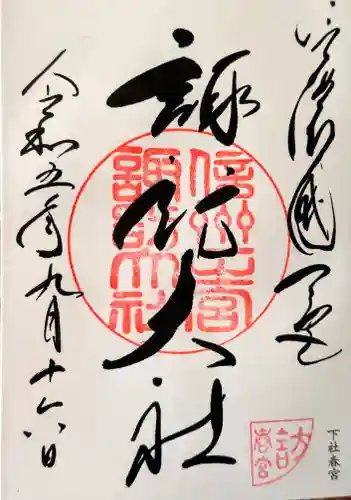 信濃國一之宮
下社春宮
諏訪大社
信州一之宮
諏訪大社
諏訪
春宮
令和五年九月十六日